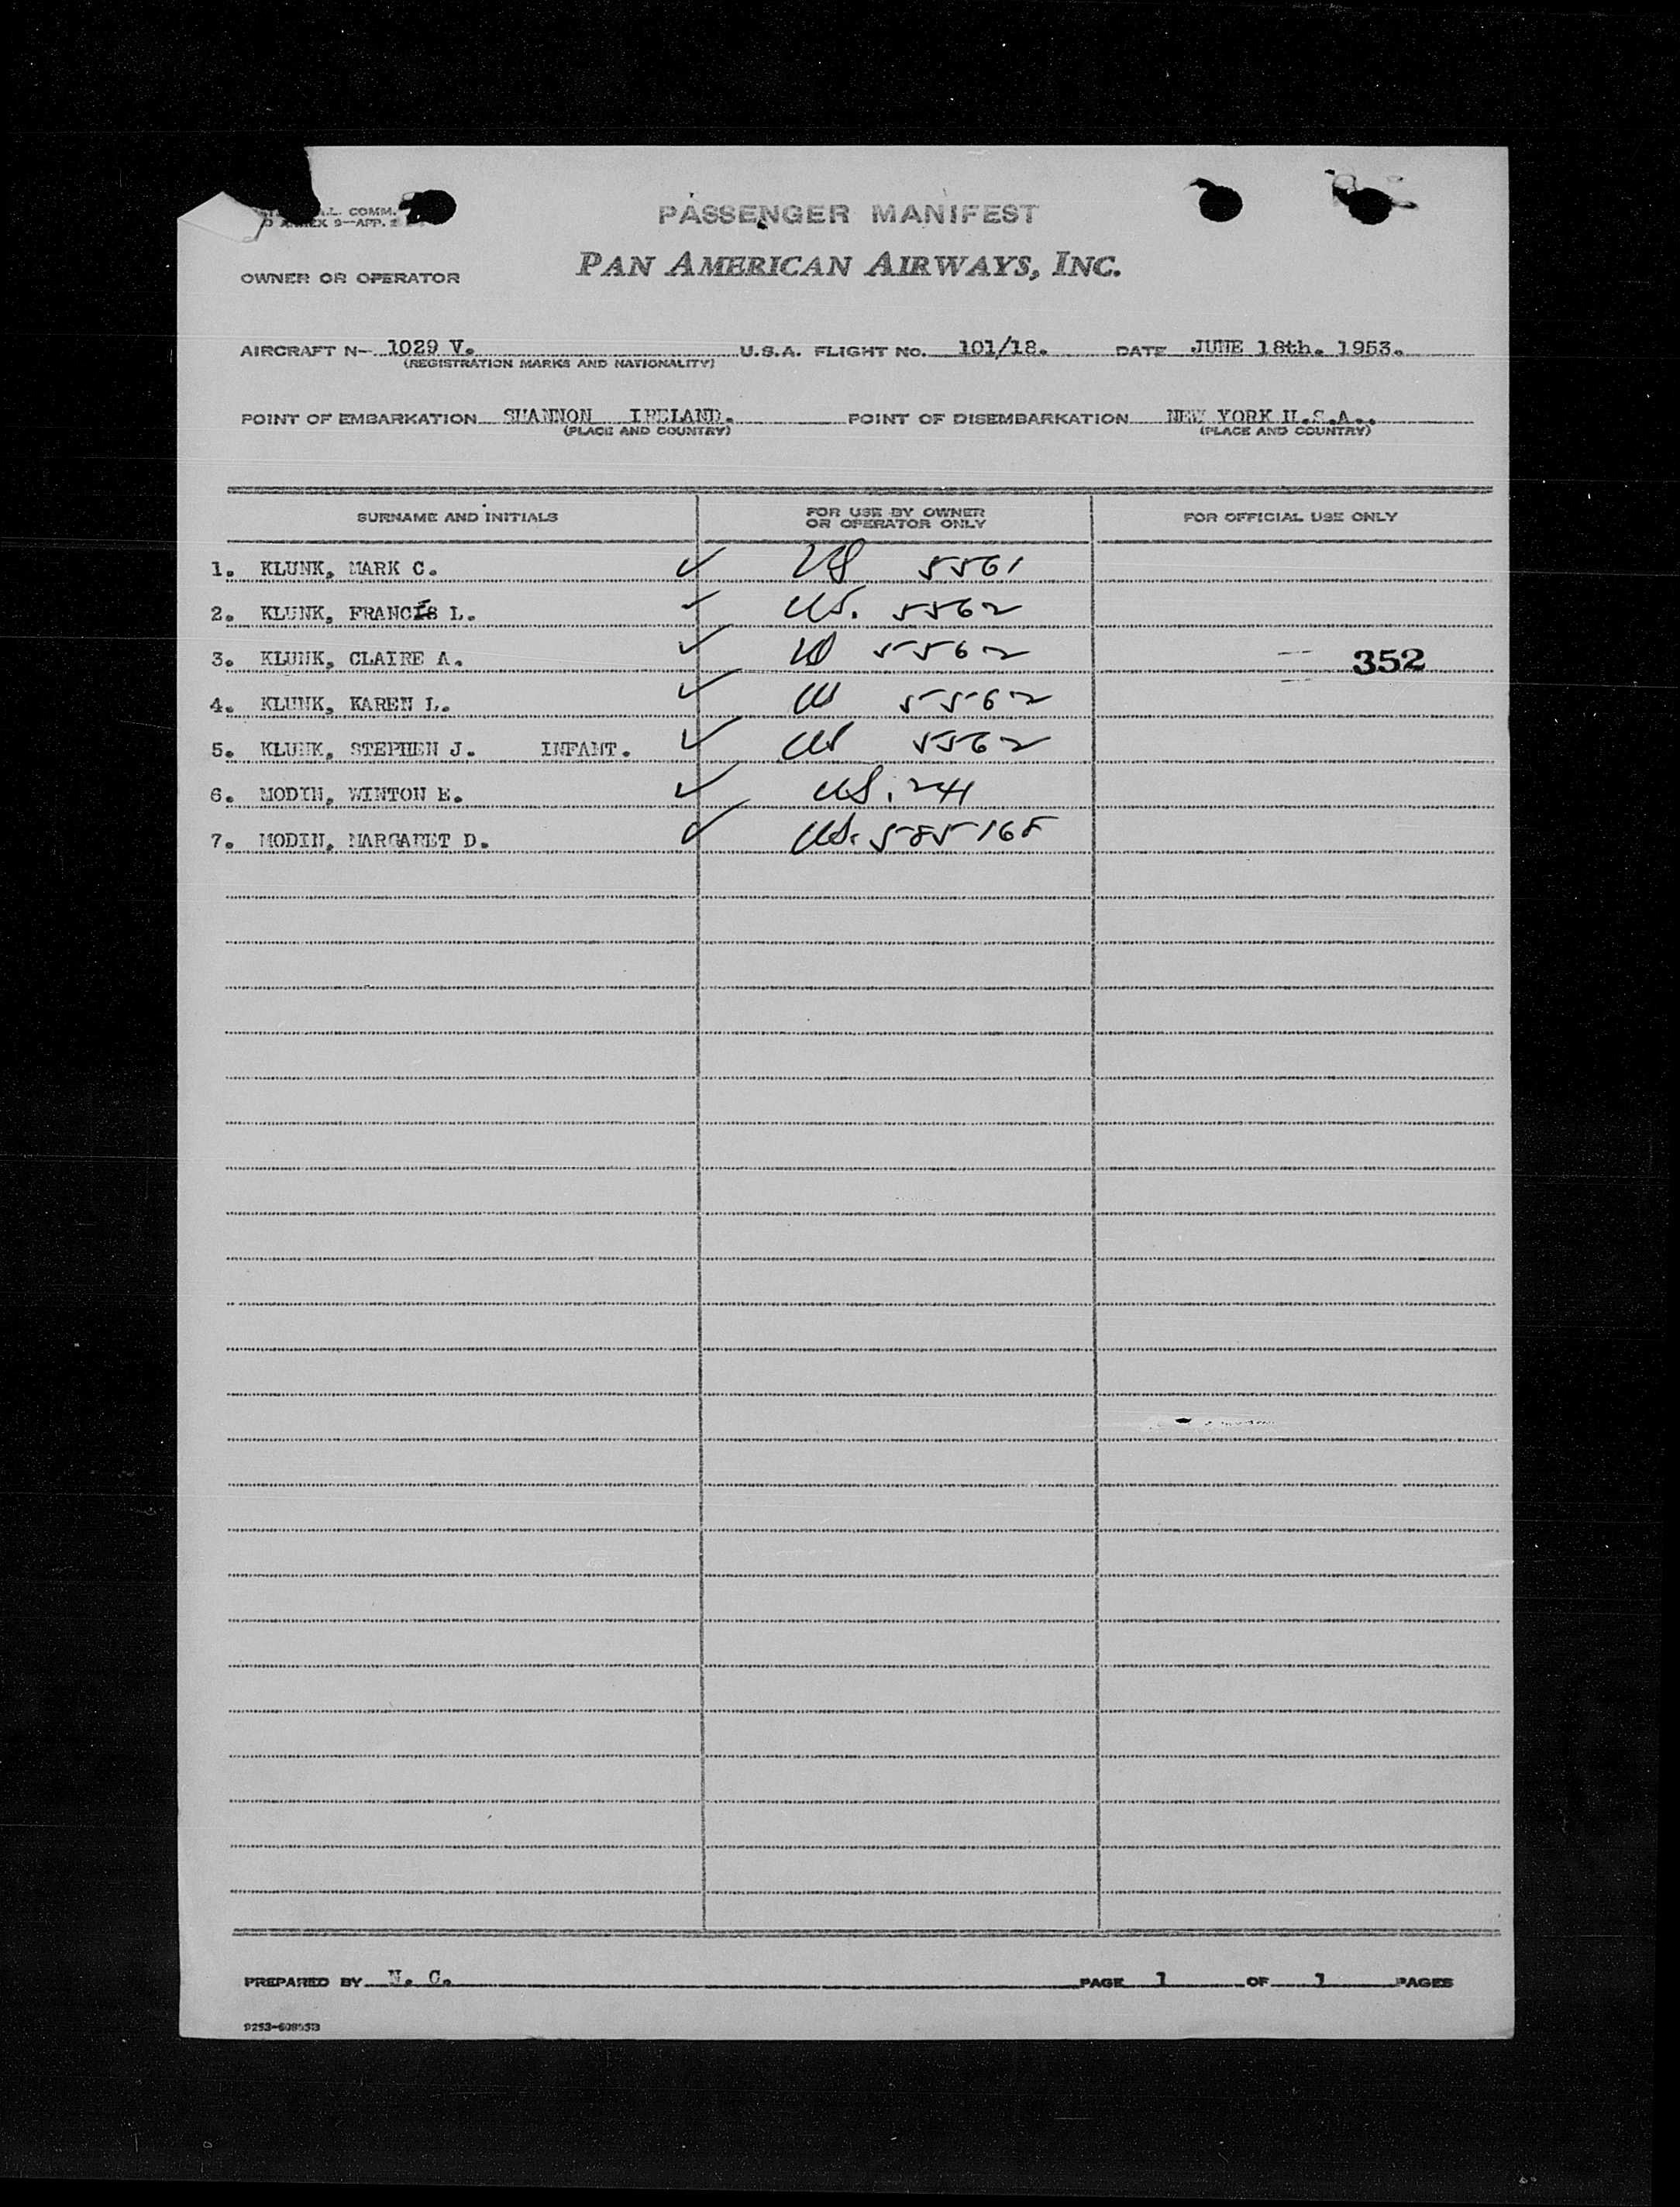 L. COMM.
ANNEX 9—APP. 2
PASSENGER MANIFEST
OWNER OR OPERATOR PAN AMERICAN AIRWAYS, INC.
AIRCRAFT N- 1029 V. U.S.A. FLIGHT NO. 101/18. DATE JUNE 18th. 1953.
(REGISTRATION MARKS AND NATIONALITY)
POINT OF EMBARKATION SHANNON IRELAND. POINT OF DISEMBARKATION NEW YORK U.S.A..
(PLACE AND COUNTRY) (PLACE AND COUNTRY)
SURNAME AND INITIALS FOR USE BY OWNER OR OPERATOR ONLY FOR OFFICIAL USE ONLY
1. KLUNK, MARK C. ✓ US 5561
2. KLUNK, FRANCIS L. ✓ US. 5562
3. KLUNK, CLAIRE A. ✓ US 5562 352
4. KLUNK, KAREN L. ✓ US 5562
5. KLUNK, STEPHEN J. INFANT. ✓ US 5562
6. MODIN, WINTON E. ✓ US. 241
7. MODIN, MARGARET D. ✓ US. 585168
PREPARED BY N. C. PAGE 1 OF 1 PAGES